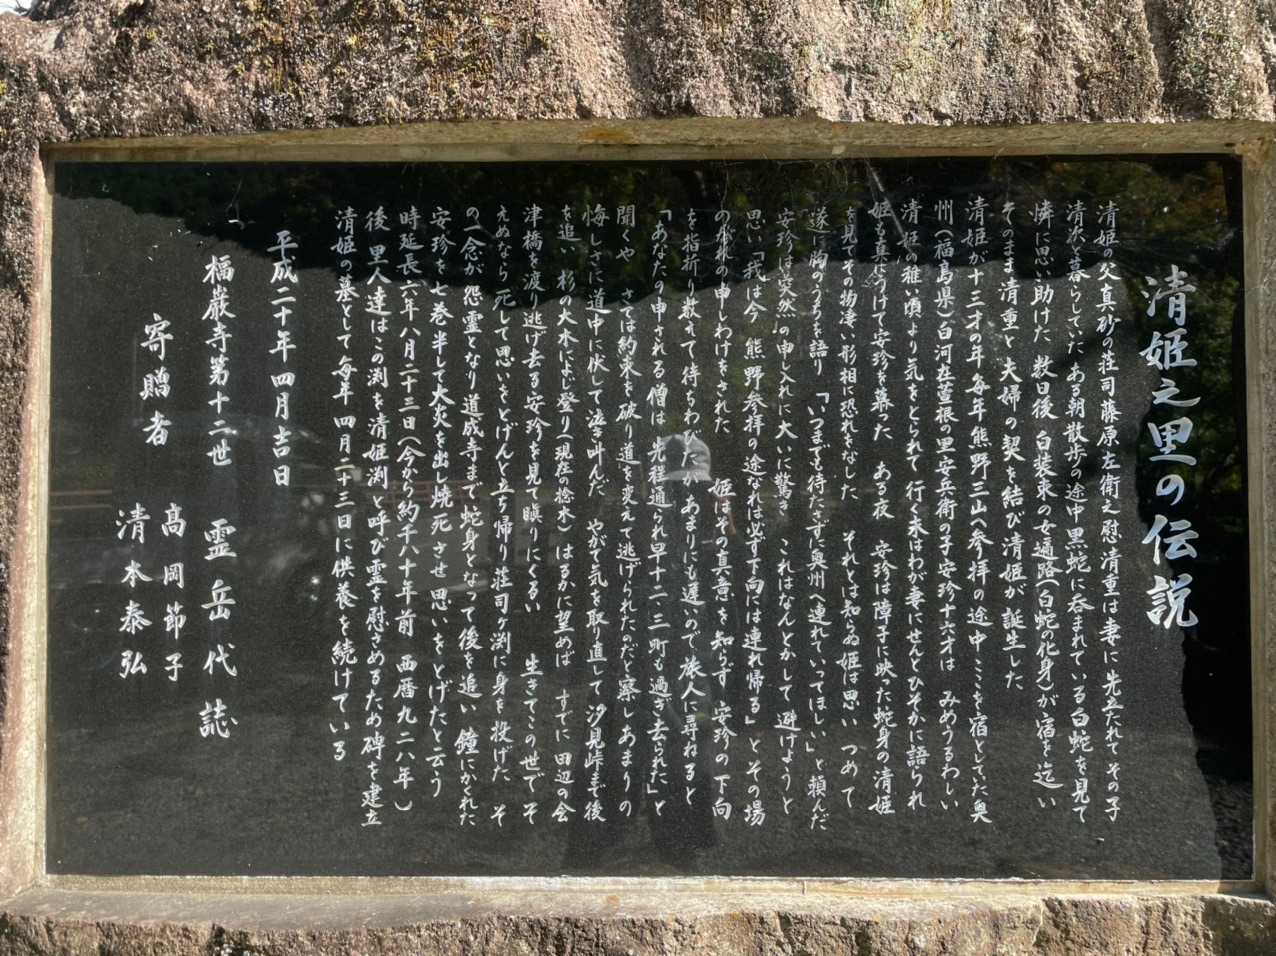 清姫之里の伝説
清姫の父真砂の荘司藤原左衛之慰清重は妻に先立たれてその子
清次と暮らしていたある朝散歩の途中黒蛇に呑まれている白蛇を見て
憐に思い助けた 数日後 白装束の女遍路(白蛇の化身)が宿を乞い
そのまま清重と夫婦の契を結び清姫が誕生した
清姫が十三才の年毎年熊野三山へ参拝の途中ここを宿としていた奥
州(福島県)白河在萱根の里安兵衛の子安珍十六才は みめうるわしい
清姫の稚い頃より気をとられて行く末はわが妻にせんとひそかに語られ
姫も真にうけて安珍を慕た ある夜 安珍は障子に映た蛇身の清姫
を見てその物凄い形相に恐れをなした それとは知ぬ姫は思いつめて
遂に胸のうちを語り「いつまでも待たさず奥州へ連れていってほしい」と頼んだ
安珍は突然の申し入れに大いに驚き これはなんとかして避けようと
思い「我は今熊野参拝の途なれば必ず下向には連れ帰る」とその場
のがれの申しわけをされた 姫はその真意を知らず 安珍の下向
を指折り数えて待ちわびたが あまりにも遅いので旅人に尋ねると
「あなたの申される僧は先程通られ早十二、三町も過ぎ去られた」と
聞くや さては約束を破り道を変えて逃げられたのだと察しあまりの
悔しさに道中に伏して泣き叫んだ やがて気を取り直して汐見峠まで後
を追い 杉の大木によじ登り(現在の捻木)はるかに望めば すでに田辺の会
津橋を渡り逃げ去る安珍を見て瞋りにくるい 生きてこの世で そ
えぬなら 死して思いをとげんと立ち帰り荘司ヶ渕に身を投げた そ
の一念が 怨霊となり道成寺まで蛇身となって後を追い 鐘にかくれた
安珍を七巻半して大炎を出し焼死させ 思いをとげたと云う
時延長六年八月二十二日(今から約千八十年前 西暦九二八年)
後里人達はこの渕を清姫渕と呼び霊を慰さめるため碑を建立
清姫の墓として毎年四月二十三日に供養を続けている
平成二十年四月吉日
福巌寺第十二世 霊岳代 誌
寄贈者 高岡節子
清水泰弘